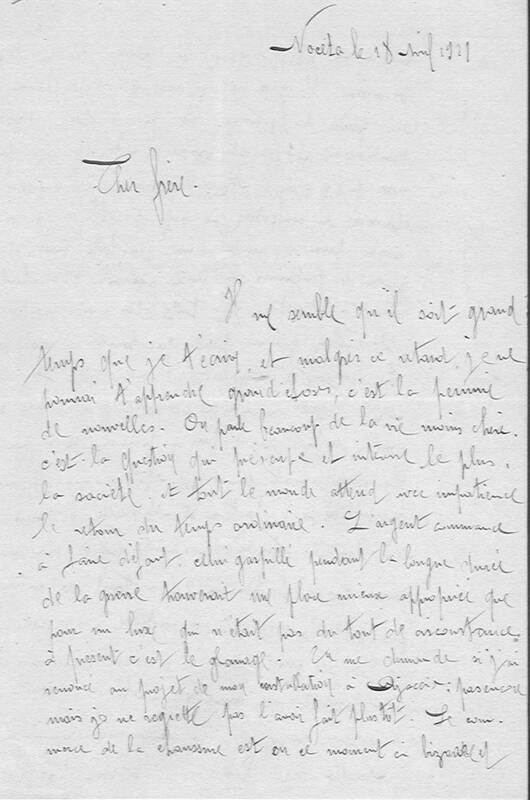 Noceta le 28 Avril 1921
Cher frère.
Il me semble qu'il soit grand
temps que je t'écrive, et malgrès ce retard, je ne
pourrai t'apprendre grand choses, c'est la penurie
de nouvelles. On parle beaucoup de la vie moins chère.
c'est la question qui préocupe et intéresse le plus,
la société, et tout le monde attend avec impatience
le retour du temps ordinaire. L'argent commence
à faire défaut, celui gaspillé pendant la longue durée
de la guerre trouverait une place mieux appropriée que
pour un luxe qui n'était pas du tout de circonstance,
à présent c'est le chomage. Tu me demande si j'ai
renoncé au projet de mon installation à Ajaccio: pas encore
mais je ne regrette pas l'avoir fait plustot. Le com-
merce de la chaussure est en ce moment ci